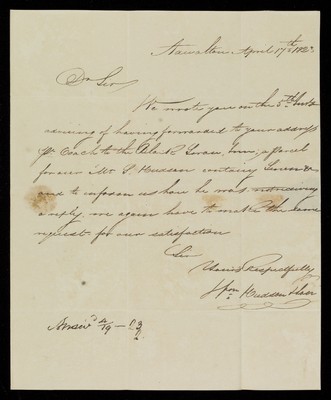 April 17th 1823
Dr Sir
We wrote you on the 5th Inst
advising of having forwarded to your address
pr Coach to the Black Swan Inn, a parcel
for our Mr Hudson containing
and to inform us how he was, not receiving
a reply we again have to make the same
request for our satisfaction
Sir
Yours Respectfully
Hudson & Son
Answd 4/19 - 23